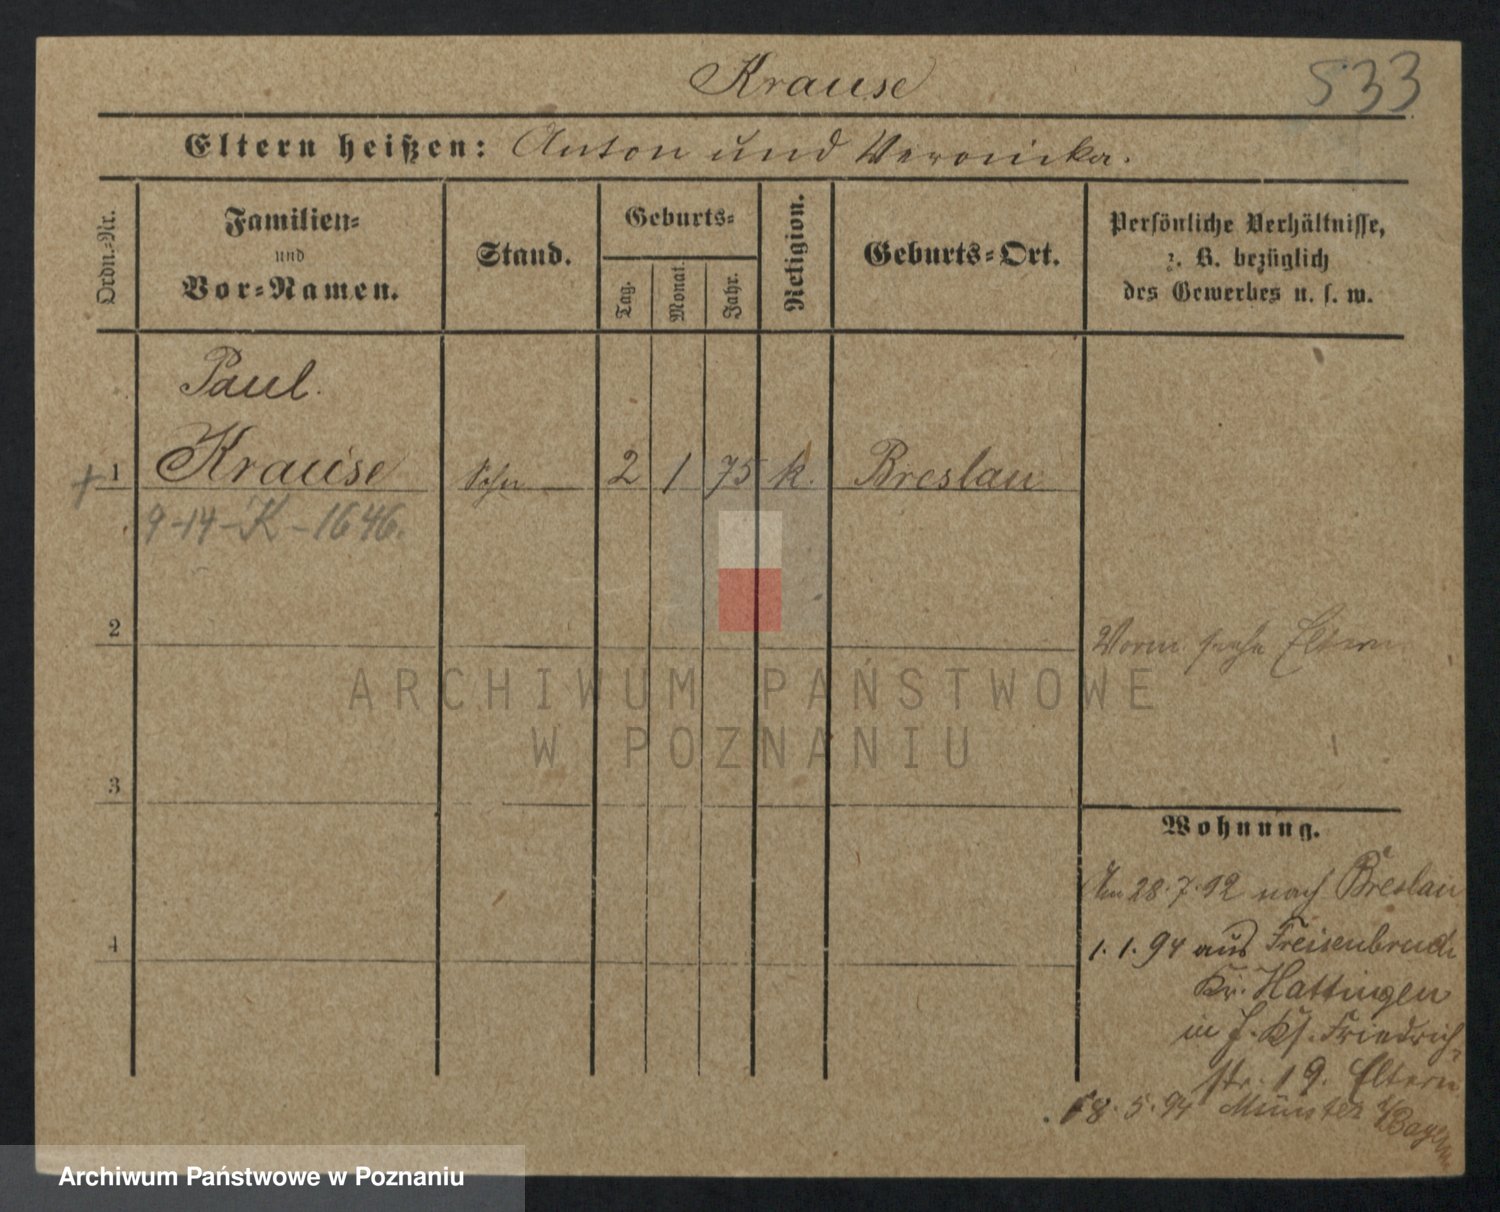 Krause
533
Eltern heißen: Anton und Veronika.
Ordn.-Nr.
Familien-
und
Vor-Namen.
Stand.
Geburts-
Tag.
Monat.
Jahr.
Religion.
Geburts-Ort.
Persönliche Verhältnisse,
z. B. bezüglich
des Gewerbes u. s. w.
Paul.
+ 1 Krause Sohn 2 1 75 k. Breslau
9-14-K-1646.
2
Worm. siehe Eltern
3
Wohnung.
Am 28.7.92 nach Breslau
4
1.1.94 aus Freisenbruch
Kr. Hattingen
in Friedrich-
str. 19. Eltern
8.5.94 Münster
ARCHIWUM PAŃSTWOWE
W POZNANIU
Archiwum Państwowe w Poznaniu